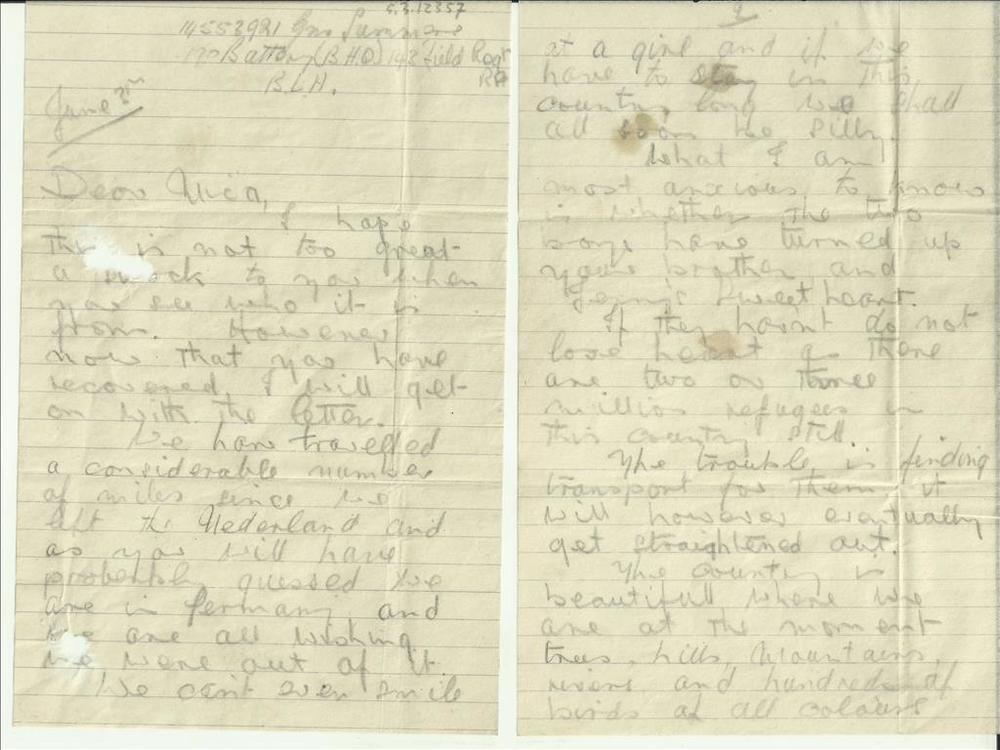 5.3.12357
14553921 Gnr Summers
170 Battery (B.H.Q) 142 Field Regt
RA
B.L.A.
June
Dear Mien,
I hope
this is not too great
a shock to you when
you see who it is
from. However
now that you have
recovered, I will get
on with the letter.
We have travelled
a considerable number
of miles since we
left the Nederland and
as you will have
probably guessed we
are in Germany and
we are all wishing
we were out of it.
We can't even smile
2
at a girl and if we
have to stay in this
country long we shall
all soon be silly.
What I am
most anxious to know
is whether the two
boys have turned up
your brother and
Jenny's Sweetheart.
If they havn't do not
lose heart as there
are two or three
million refugees in
this country still.
The trouble is finding
transport for them it
will however eventually
get straightened out.
The country is
beautifull where we
are at the moment
trees, hills, Mountains,
rivers and hundreds of
birds of all colours